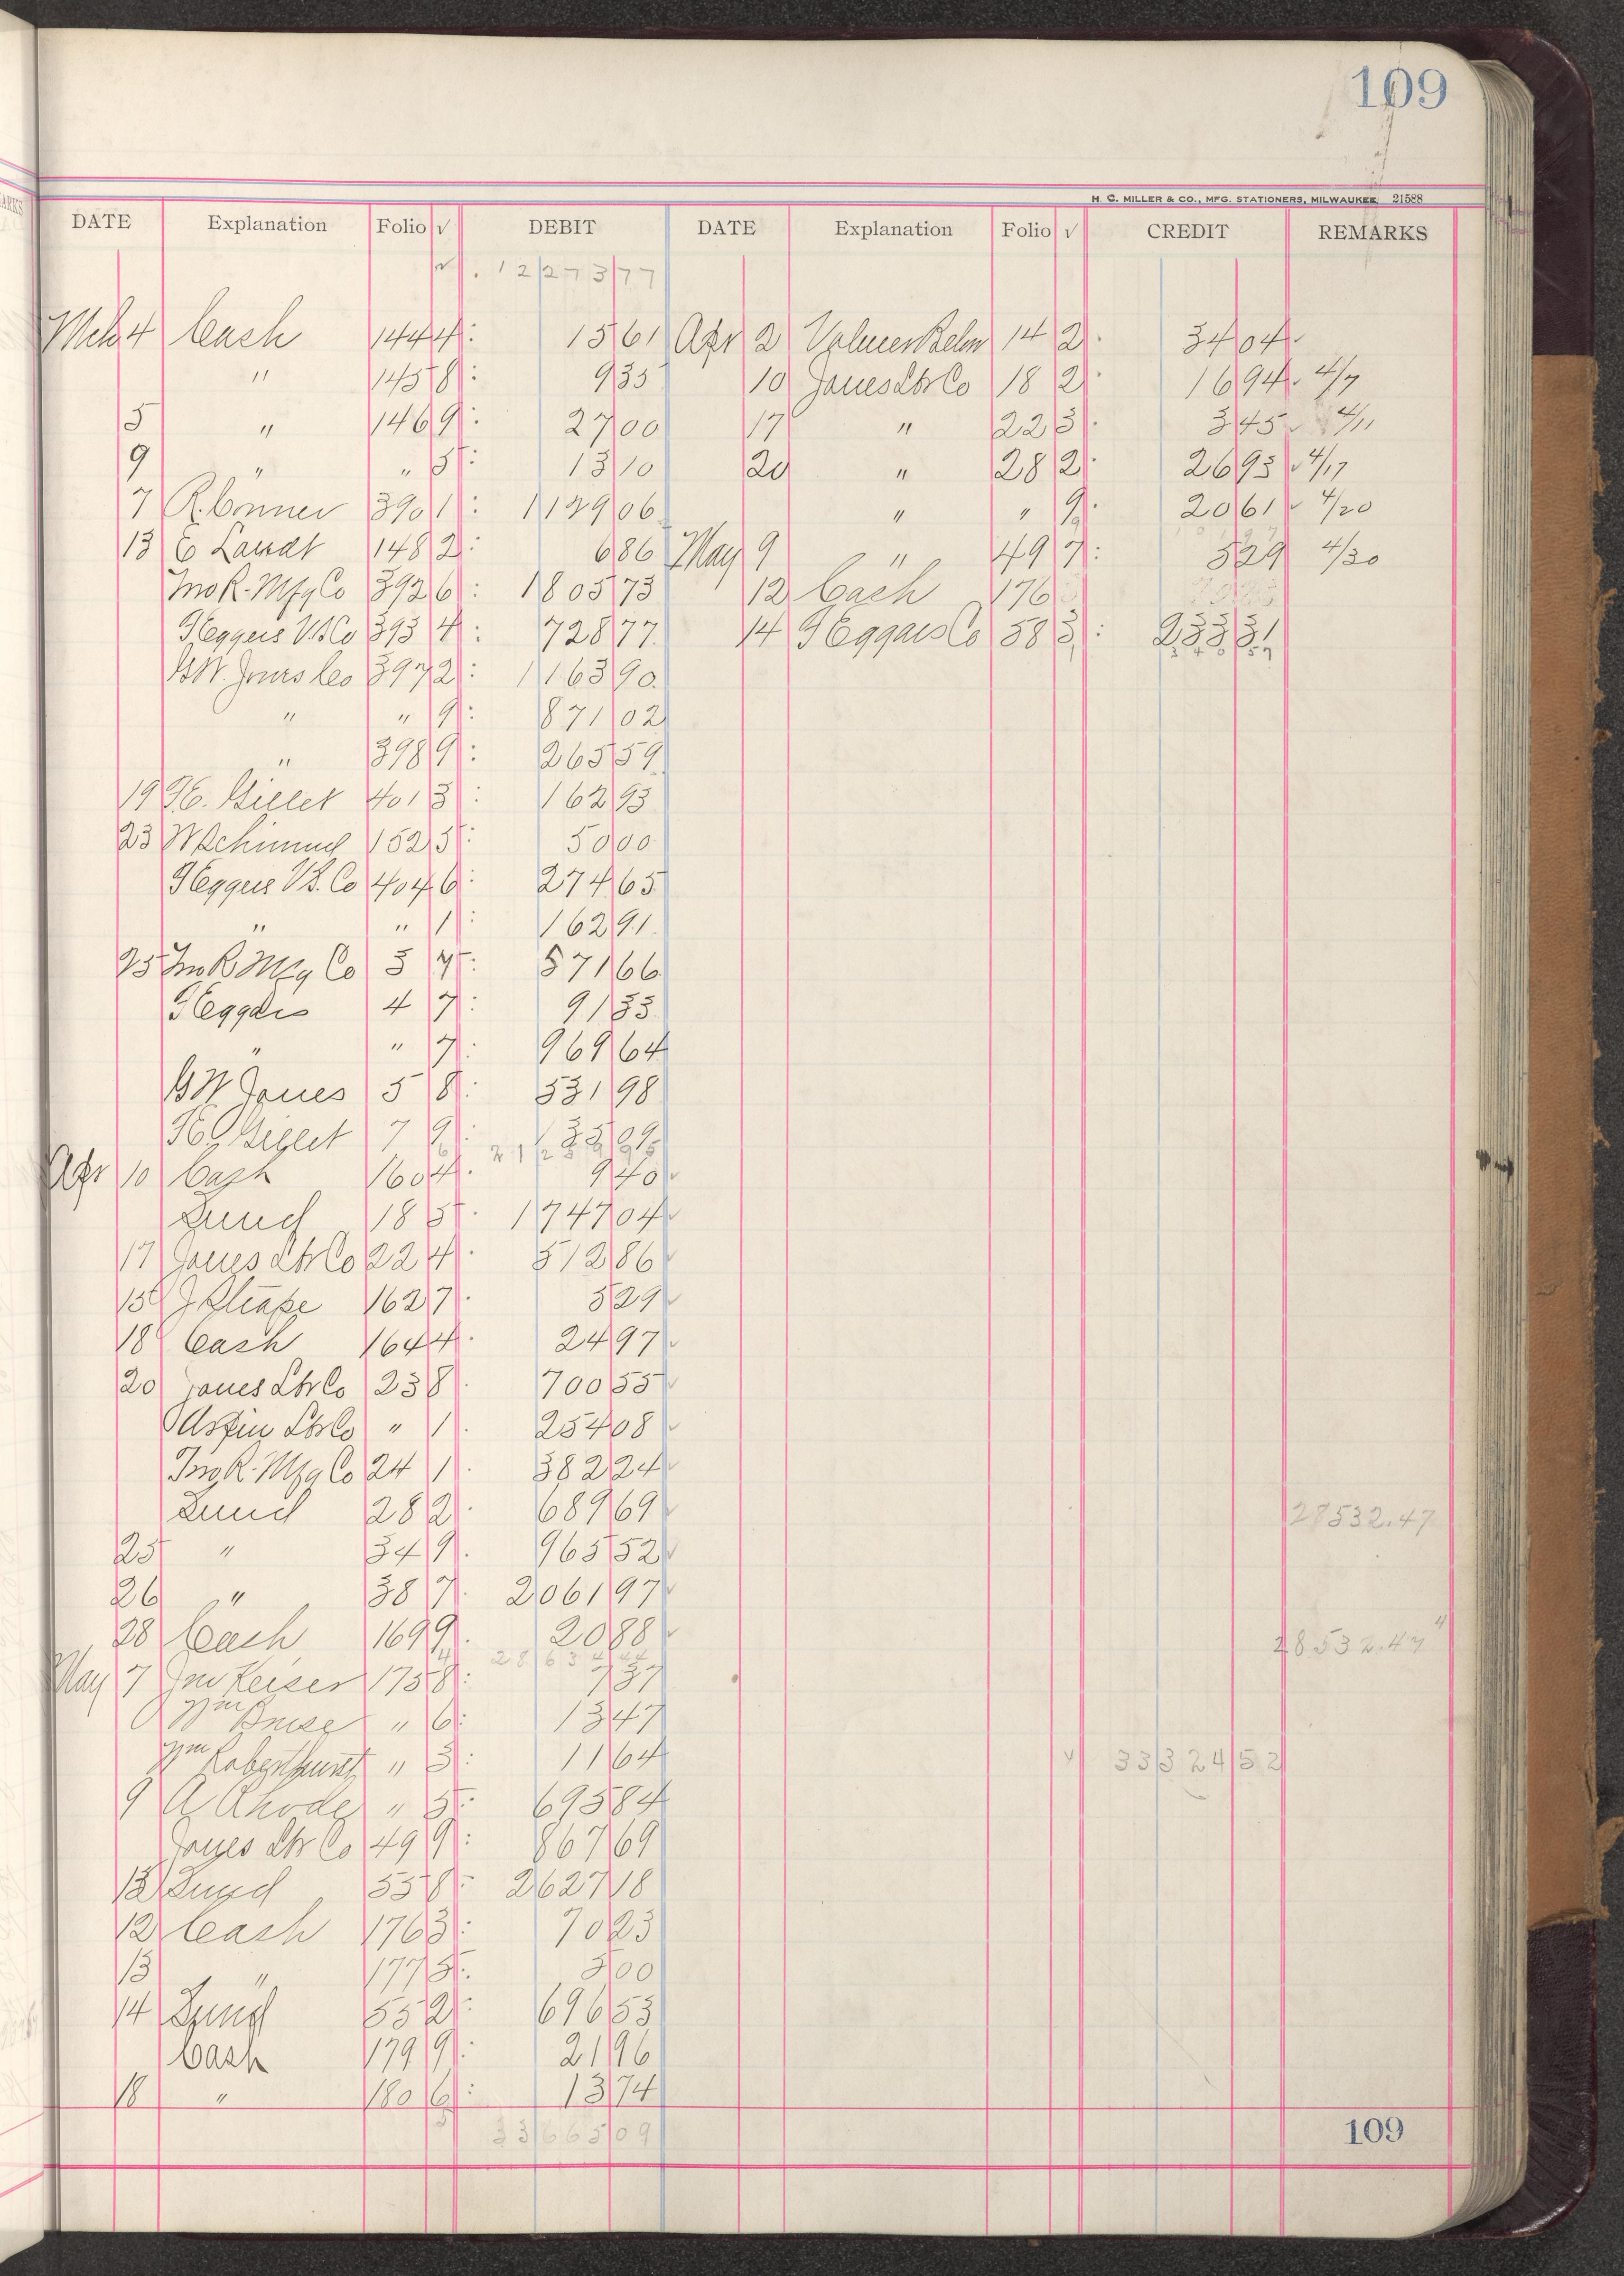 109
H. C. MILLER & CO., MFG. STATIONERS, MILWAUKEE 21588
DATE Explanation Folio √ DEBIT DATE Explanation Folio √ CREDIT REMARKS
√ 12 273 77
Mch 4 Cash 144 4 : 15 61 Apr 2 14 2 : 34 04
" 145 8 : 9 35 10 Jones Lbr Co 18 2 : 16 94 4/7
5 " 146 9 : 27 00 17 " 22 3 : 3 45 4/11
9 " " 5 : 13 10 20 " 28 2 : 26 93 4/17
7 R. Conner 390 1 : 1 129 06 " " 9 : 20 61 4/20
13 E Landt 148 2 : 6 86 May 9 " 49 7 : 5 29 4/30
Jno R. Mfg Co 392 6 : 1 805 73 12 Cash 176
F Eggers V.S Co 393 4 : 728 77 14 F Eggers Co 58 3 : 233 31
G W. Jones Co 397 2 : 1 163 90
" " 9 : 871 02
" 398 9 : 265 59
19 F.E. Gillet 401 3 : 162 93
23 W Schimmel 152 5 : 50 00
F Eggers V S. Co 404 6 : 274 65
" " 1 : 162 91
25 Jno R Mfg Co 3 4 : 571 66
F Eggers 4 7 : 91 33
" " 7 : 969 64
G W Jones 5 8 : 531 98
F E Gillet 7 9 : 135 09
Apr 10 Cash 160 4 9 40
Lund 18 5 1 747 04
17 Jones Lbr Co 22 4 512 86
15 162 7 5 29
18 Cash 164 4 24 97
20 Jones Lbr Co 23 8 700 55
Aspin Lbr Co " 1 254 08
Jno R. Mfg Co 24 1 382 24
Lund 28 2 689 69 28532.47
25 " 34 9 965 52
26 " 38 7 2 061 97
28 Cash 169 9 20 88 28532.47
28 634 44
May 7 Jno Keiser 175 8 : 7 37
Wm Bruse " 6 : 13 47
Wm " 3 : 11 64 √ 33 324 52
9 A Rhode " 5 : 695 84
Jones Lbr Co 49 9 : 867 69
13 Lund 55 8 : 2 627 18
12 Cash 176 3 : 70 23
13 " 177 5 : 5 00
14 Lund 55 2 : 696 53
Cash 179 9 : 21 96
18 " 180 6 : 13 74
33 665 09
109